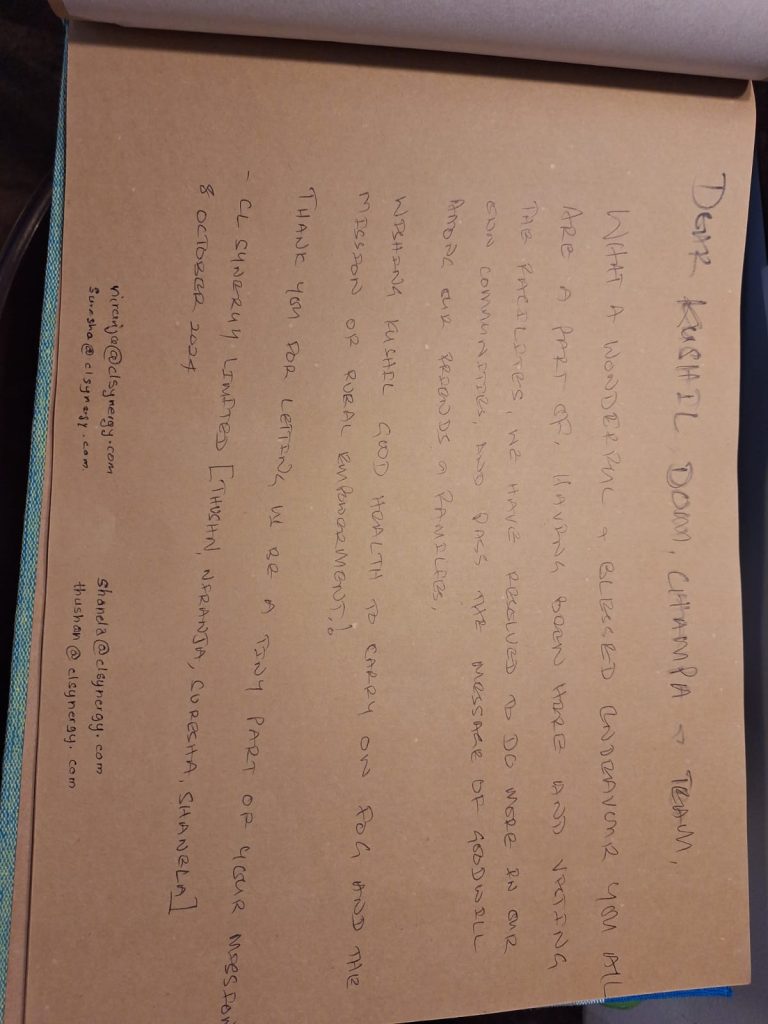 DEAR KUSHIL, DOMM, CHAMPA & TEAM,
WHAT A WONDERFUL & BLESSED ENDEAVOUR YOU ALL
ARE A PART OF. HAVING BEEN HERE AND VISITING
THE FACILITIES, WE HAVE RESOLVED TO DO MORE IN OUR
OWN COMMUNITIES, AND PASS THE MESSAGE OF GOODWILL
AMONG OUR FRIENDS & FAMILIES,
WISHING KUSHIL GOOD HEALTH TO CARRY ON FOG AND THE
MISSION OF RURAL EMPOWERMENT!
THANK YOU FOR LETTING US BE A TINY PART OF YOUR MISSION
- CL SYNERGY LIMITED [THUSHN, NIRANJA, SURESHA, SHANELA]
8 OCTOBER 2024
niranja@clsynergy.com
suresha@clsynergy.com
shanela@clsynergy.com
thushan@clsynergy.com